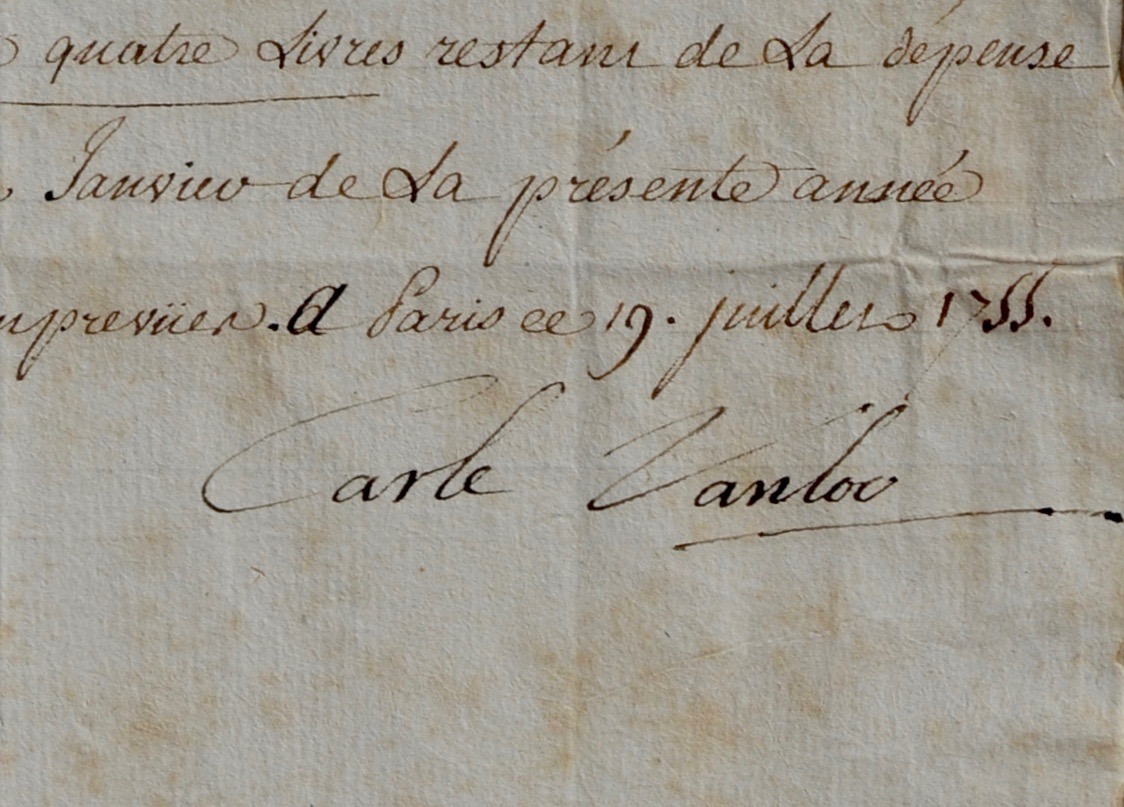 quatre Livres restant de La dépense
Janvier de La présente année
imprevüES. A Paris ce 19. juillet 1755.
Carle Vanloo